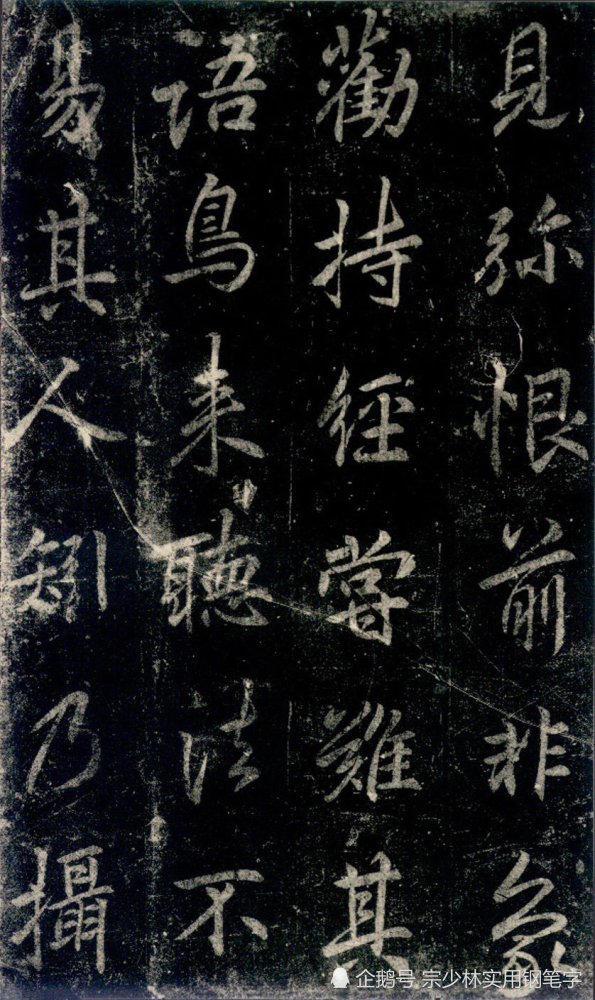 見弥恨前非象
勸持經嘗難其
語鳥来聽法不
易其人矧乃攝
企鹅号 宗少林实用钢笔字